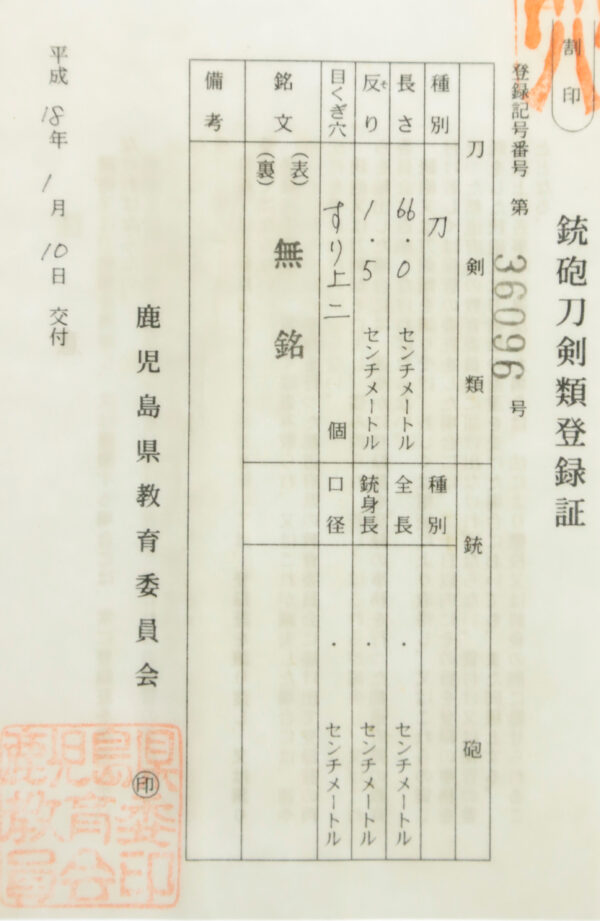 銃砲刀剣類登録証
割印
登録記号番号 第 36096 号
刀剣類
銃砲
種別 刀
種別
長さ 66.0 センチメートル
全長 ・ センチメートル
反り 1.5 センチメートル
そ
銃身長 ・ センチメートル
目くぎ穴 すり上二 個
口径 ・ センチメートル
銘文 (表) 無銘
(裏)
備考
鹿児島県教育委員会 印
平成 18年 1月 10日 交付
鹿児島県
教育委
員会印